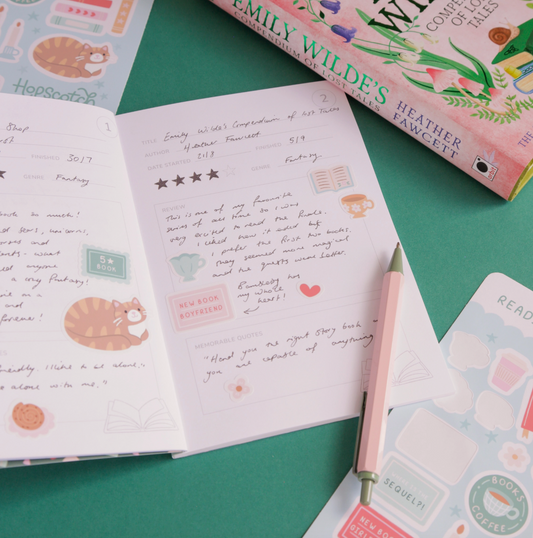 Hopscotch
EMILY WILDE'S
COMPENDIUM OF LOST TALES
HEATHER
FAWCETT
COMPENDIUM
OF LOST
TALES
THE
1
Shop
FINISHED 30/7
GENRE Fantasy
so much!
unicorns,
and
want
anyone
a cosy fantasy!
in a
and
forever!
5★
BOOK
friendly. I like to be alone."
alone with me."
2
TITLE Emily Wilde's Compendium of Lost Tales
AUTHOR Heather Fawcett
DATE STARTED 31/8 FINISHED 5/9
★★★★☆ GENRE Fantasy
REVIEW
This is one of my favourite
series of all time so I was
very excited to read the finale.
I liked how it ended but
I prefer the first two books.
They seemed more magical
and the quests were better.
NEW BOOK
BOYFRIEND
Bambleby has
my whole
heart!
MEMORABLE QUOTES
"Hand you the right story book -
you are capable of anything
READ
SEQUEL?!
BOOKS
COFFEE
NEW BOOK